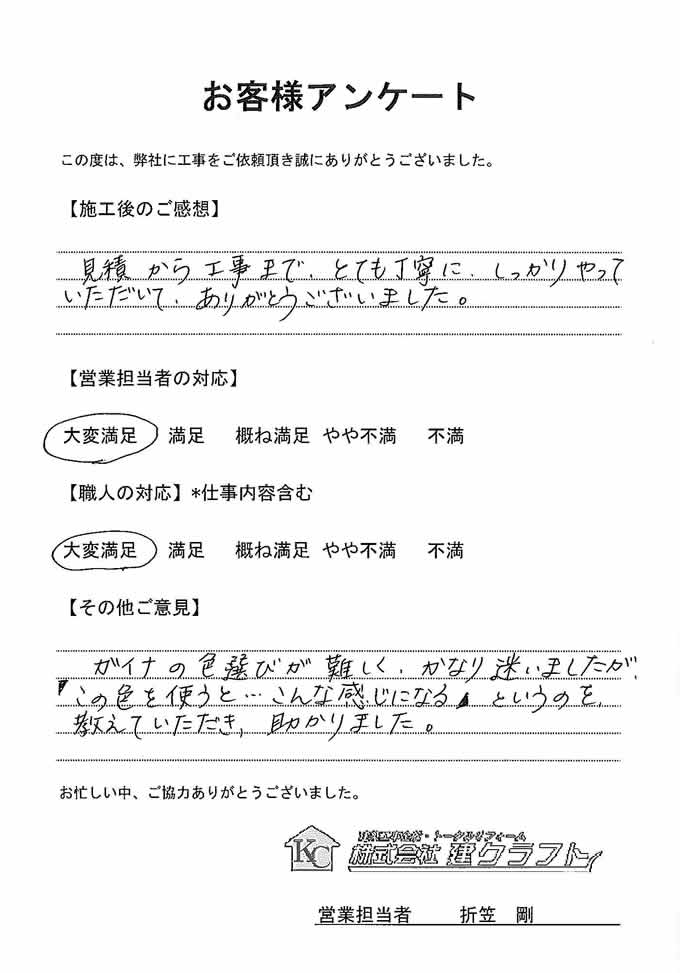 お客様アンケート
この度は、弊社に工事をご依頼頂き誠にありがとうございました。
【施工後のご感想】
見積から工事まで、とても丁寧に、しっかりやって
いただいて、ありがとうございました。
【営業担当者の対応】
大変満足 満足 概ね満足 やや不満 不満
【職人の対応】*仕事内容含む
大変満足 満足 概ね満足 やや不満 不満
【その他ご意見】
ガイナの色選びが難しく、かなり迷いましたが、
「この色を使うと…こんな感じになる」というのを、
教えていただき、助かりました。
お忙しい中、ご協力ありがとうございました。
KC
トータルリフォーム
株式会社 建クラフト
営業担当者 折笠 剛